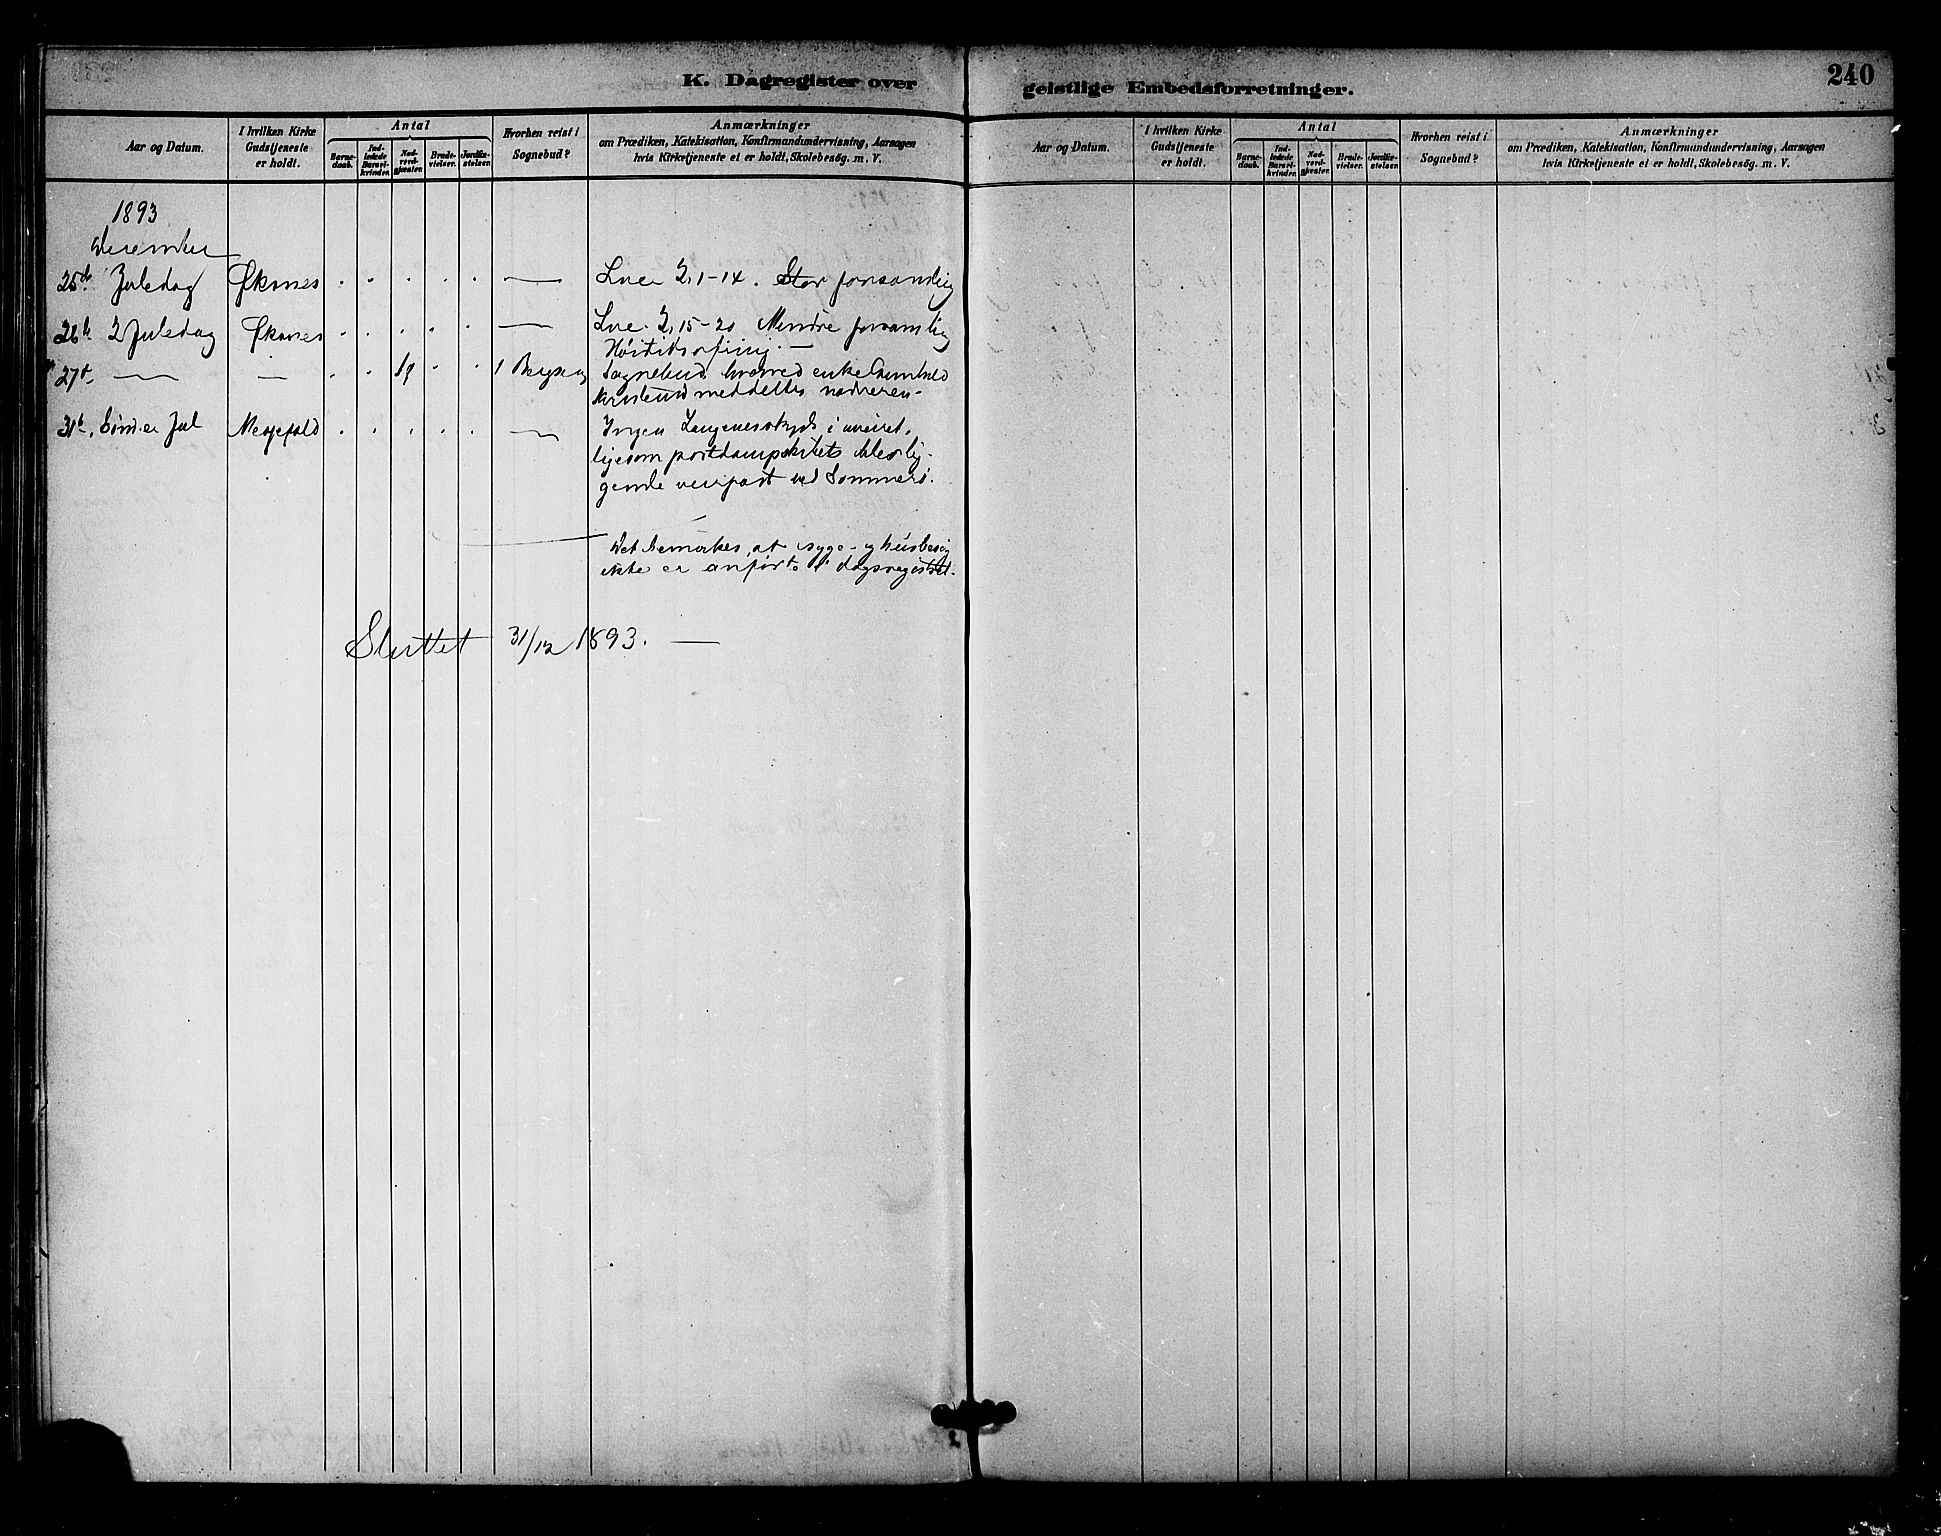 K. Dagregister over geistlige Embedsforretninger.
240
Aar og Datum.
I hvilken Kirke Gudstjeneste er holdt.
Antal
Barnedaab.
Indledede Barselkvinder.
Nadverdgjæster.
Brudevielser.
Jordfæstelser.
Hvorhen reist i Sognebud?
Anmærkninger
om Prædiken, Katekisation, Konfirmandundervisning, Aarsagen
hvis Kirketjeneste ei er holdt, Skolebesög. m. V.
Aar og Datum.
I hvilken Kirke Gudstjeneste er holdt.
Antal
Barnedaab.
Indledede Barselkvinder.
Nadverdgjæster.
Brudevielser.
Jordfæstelser.
Hvorhen reist i Sognebud?
Anmærkninger
om Prædiken, Katekisation, Konfirmandundervisning, Aarsagen
hvis Kirketjeneste ei er holdt, Skolebesög. m. V.
1893
December
25de Juledag Øksnes — Luc 2,1-14. Stor forsamling
26de 2 Juledag Øksnes — Luc. 2,15-20 Mindre forsamling
27de — — 1 Sognebud, hvorved enke
meddeltes nadveren.
31te Sønd. e Jul — Ingen Langenesskyds i uveiret,
ligesom postdampskibets
veirfast ved Sommerø.
Det bemærkes, at syge- og husbesøg
ikke er anført i dagsregistret.
Sluttet 31/12 1893. —